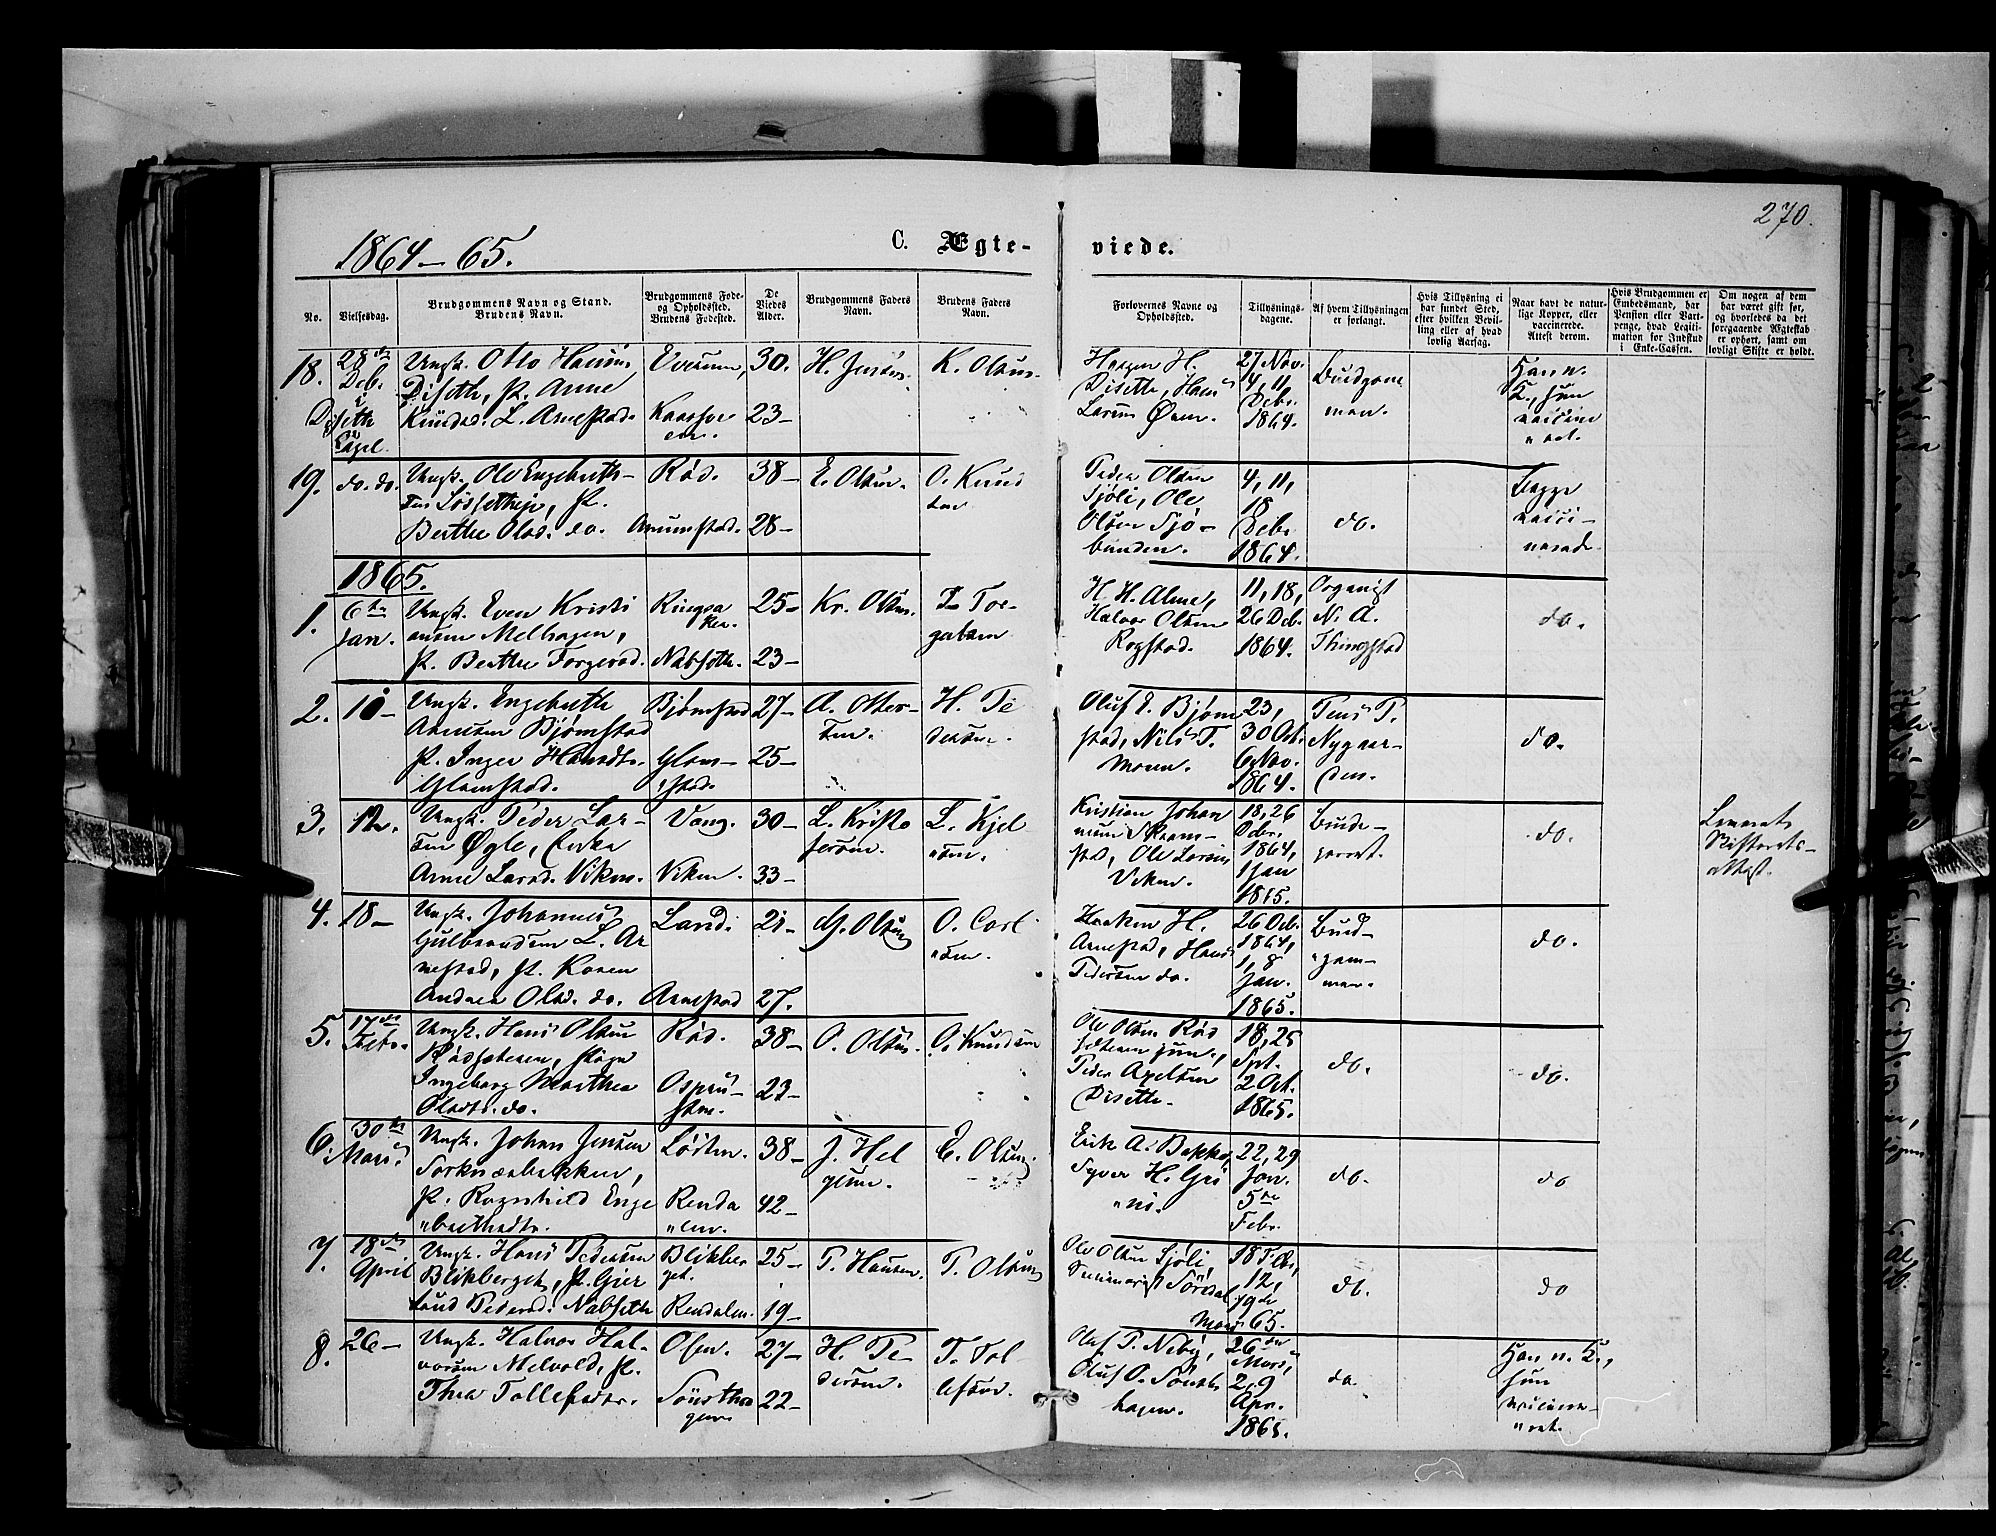 270.
1864-65.
C. Ægte-
viede.
No.
Vielsesdag.
Brudgommens Navn og Stand.
Brudens Navn.
Brudgommens Føde-
og Opholdssted.
Brudens Fødested.
De
Viedes
Alder.
Brudgommens Faders
Navn.
Brudens Faders
Navn.
Forlovernes Navne og
Opholdssted.
Tillysnings-
dagene.
Af hvem Tillysningen
er forlangt.
Hvis Tillysning ei
har fundet Sted,
efter hvilken Bevil-
ling eller af hvad
lovlig Aarsag.
Naar havt de natur-
lige Kopper, eller
vaccinerede.
Attest derom.
Hvis Brudgommen er
Embedsmand, har
Pension eller Vart-
penge, hvad Legiti-
mation for Indskud
i Enke-Cassen.
Om nogen af dem
har været gift før,
og hvorledes da det
foregaaende Ægteskab
er ophørt, samt om
lovligt Skifte er holdt.
18. 28de Deb. i Diseth Capel.
Ungk. Otto Hansen
Diseth, P. Anne
Knudsd. L. Arnestad.
30.
23-
H. Jensen.
K. Olsen.
Haagen H.
Diseth, Hans
Larsen Øien.
27 Nov.
4, 11
Debr.
1864.
Brudgom
men.
Han n.
K., hun
vaccine
ret.
19. do. do.
Ungk. Ole Engebreth-
sen
Berthe Olsd. do.
Rød.
Arnestad.
38-
28-
E. Olsen.
O. Knud
sen
Peder Olsen
Sjøli, Ole
Olsen Sjø-
bunden.
4, 11,
18
Debr.
1864.
do.
Begge
vacci-
nerede.
1865.
1. 6te Jan.
Ungk. Even Kristi
ansen Melhagen,
P. Berthe Torgersd.
Ringsa
ker.
Nabseth.
25-
23-
Kr. Olsen.
T. Tor-
gersen
H. H. Alme,
Halvor Olsen
Rogstad.
11, 18,
26 Deb.
1864.
Organist
N. A.
Thingstad
do.
2. 10-
Ungk. Engebreth
Arnesen Bjørnstad
P. Inger Hansdtr.
Glomstad.
Bjørnstad
Glom-
stad.
27-
25-
A. Olsen.
H. Pe
dersen.
Oluf E. Bjørn
stad, Nils T.
Moen.
23,
30 Oct.
6 Nov.
1864.
Jens P.
Nygaar-
den.
do.
3. 12.
Ungk. Peder Lar-
sen Øgle, Enke
Anne Larsd. Viken.
Vang.
Viken.
30-
33-
L. Kristo
fersen.
L. Kjel
sen.
Kristian Johan
nesen Kram-
stad, Ole Larsen
Viken.
18, 26
Debr.
1864,
1 Jan
1865.
Brude-
parret.
do.
Leveret
Skifterets-
attest.
4. 18-
Ungk. Johannes
Gulbrandsen L. Ar
nestad, P. Karen
Andrea Olsd. do.
Land.
Arnestad
21-
27.
G. Olsen
O. Carl
sen.
Haaken H.
Arnestad, Hans
Pedersen do.
26 Deb.
1864,
1, 8
Jan.
1865.
Brud-
gom-
men.
do.
5. 17de Febr.
Ungk. Hans Olsen
Rødsæteren, Pige
Ingeborg Marthea
Olsdtr. do.
Rød.
38-
23-
O. Olsen.
O. Knudsen
Ole Olsen Rød
sæteren jun.,
Peder Axelsen
Diseth.
18, 25
Spt.
2 Oct.
1865.
do.
do.
6. 30te Mars.
Ungk. Johan Jensen
Torknæsbakken,
P. Ragnhild Enge
brethsdtr.
Løiten.
Renda
len.
38-
42-
J. Hel
gesen.
E. Olsen.
Erik A. Bakke,
Syver H. Gri
ni.
22, 29
Jan.
5te
Febr.
do.
do
7. 18de April
Ungk. Hans Pedersen
Blikberget, P. Gjer
trud Pedersd. Nabseth
Blikber
get.
Rendalen.
25-
19-
P. Hansen.
P. Olsen
Ole Olsen Sjøli,
12,
19de
Mars 65.
do.
do
8. 26-
Ungk. Halvor Hal-
vorsen Melvold, P.
Thea Tollefsdtr.
Osen.
27-
22-
H. Pe-
dersen.
T. Tol
lefsen.
Oluf P. Neby,
Oluf O.
hagen.
26de
Mars,
2, 9
Apr.
1865.
do.
Han n. K.,
hun
vaccine-
ret.